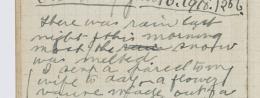 10.1918. 1366.
There was rain last
night & this morning
most the snow
was melted.
I sent a parcel to my
wife to day a flower
vause made out of a